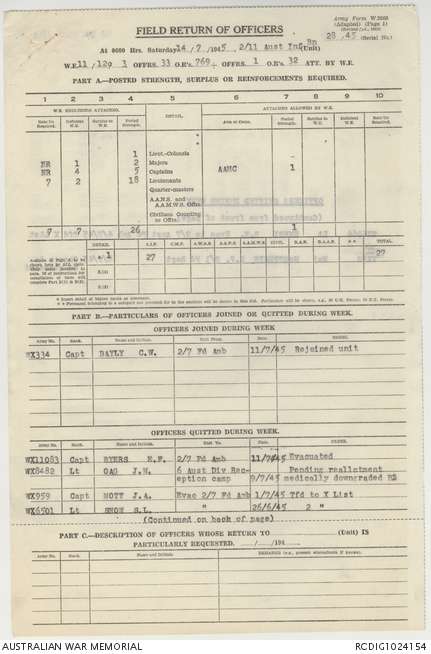 Army Form W.3008
(Adapted) (Page 1)
FIELD RETURN OF OFFICERS
28/45 (Serial No.)
At 0600 Hrs. Saturday 14/7/1945 2/11 Aust Inf Bn (Unit)
W.E. 11/129 1 OFFRS. 33 O.R's. 769 + OFFRS. 1 O.R's. 32 ATT. BY W.E.
PART A.—POSTED STRENGTH, SURPLUS OR REINFORCEMENTS REQUIRED.
1 2 3 4 5 6 7 8 9 10
W.E. EXCLUDING ATTACHED. DETAIL. ATTACHED ALLOWED BY W.E.
Reinfts Required. Deficient W.E. Surplus to W.E. Posted Strength Arm or Corps. Posted Strength. Surplus to W.E. Deficient W.E. Reinfts Required.
1 Lieut.-Colonels
NR 1 2 Majors
NR 4 5 Captains AAMC 1
7 2 18 Lieutenants
Quarter-masters
A.A.N.S. and A.A.M.W.S. Offrs.
Civilians Counting as Offrs.
7 7 26 1
DETAIL. A.I.F. C.M.F. A.W.A.S. A.A.N.S. A.A.M.W.S. CIVIL. R.A.N. R.A.A.F. TOTAL.
27 27
PART B.—PARTICULARS OF OFFICERS JOINED OR QUITTED DURING WEEK.
OFFICERS JOINED DURING WEEK
Army No. Rank. Name and Initials. Unit From. Date.
WX334 Capt BAYLY C.W. 2/7 Fd Amb 11/7/45 Rejoined unit
OFFICERS QUITTED DURING WEEK.
Army No. Rank. Name and Initials. Unit To. Date.
WX11083 Capt BYERS E.F. 2/7 Fd Amb 11/7/45 Evacuated
WX8482 Lt GAG J.M. 6 Aust Div Rec- Pending reallotment
eption camp 9/7/45 medically downgraded B2
WX959 Capt MOTT J.A. Evac 2/7 Fd Amb 1/7/45 Tfd to X List
WX6501 Lt SNOW S.L. " 26/6/45 2 "
(Continued on back of page)
PART C.—DESCRIPTION OF OFFICERS WHOSE RETURN TO (Unit) IS
PARTICULARLY REQUESTED. / /194
Army No. Rank. Name and Initials. REMARKS (e.g., present whereabouts if known).
AUSTRALIAN WAR MEMORIAL RCDIG1024154